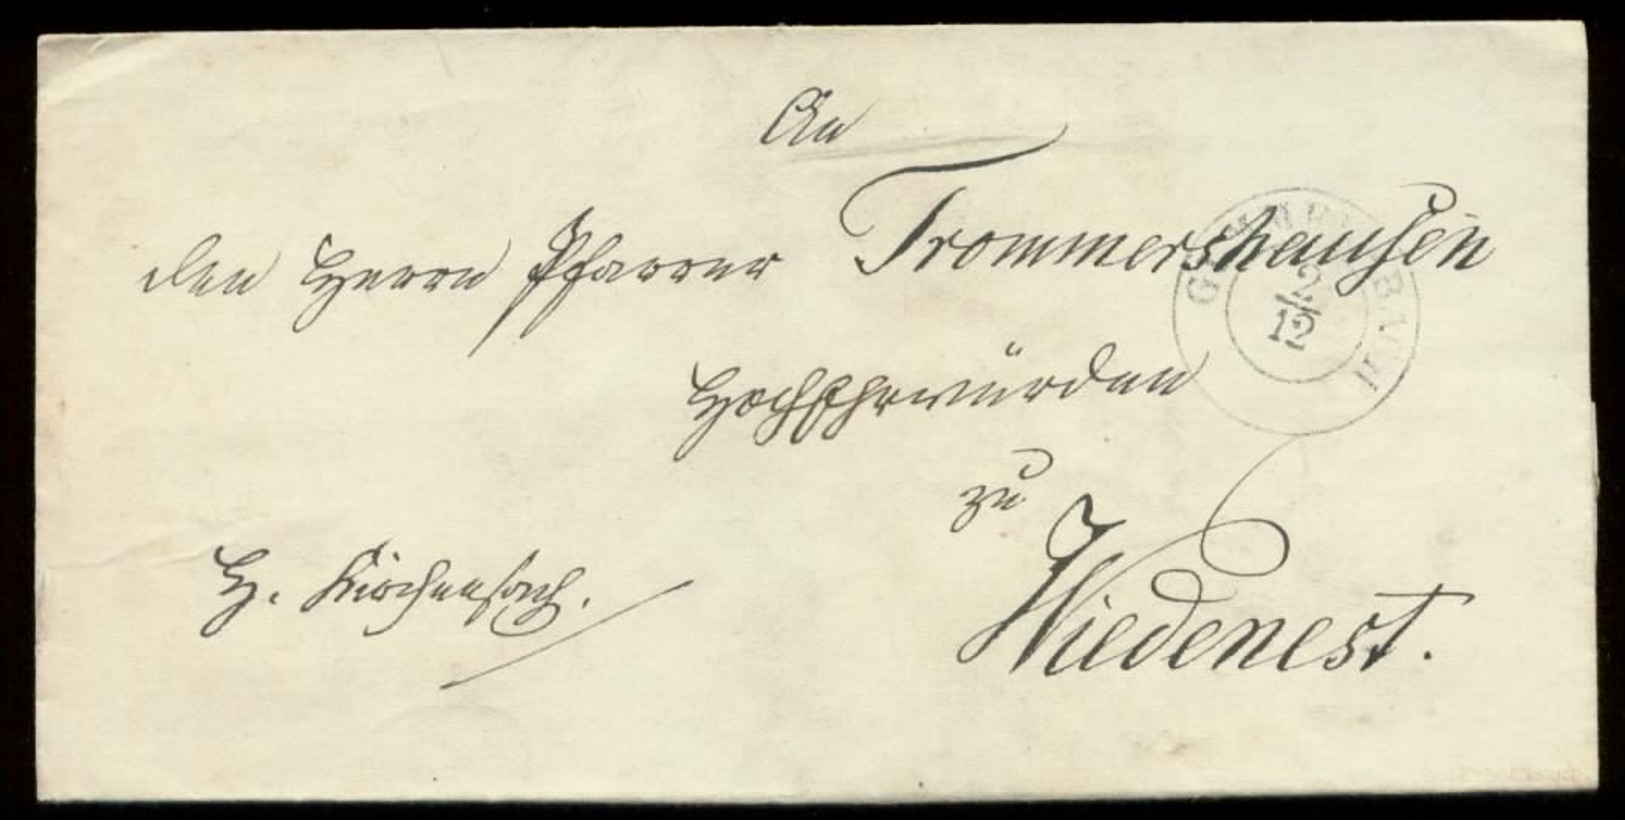 An
den Herrn Pfarrer Trommershausen
Hochehrwürden
zu
Wiedenest.
H. Kirchensach.
GUMMERSBACH
2/12